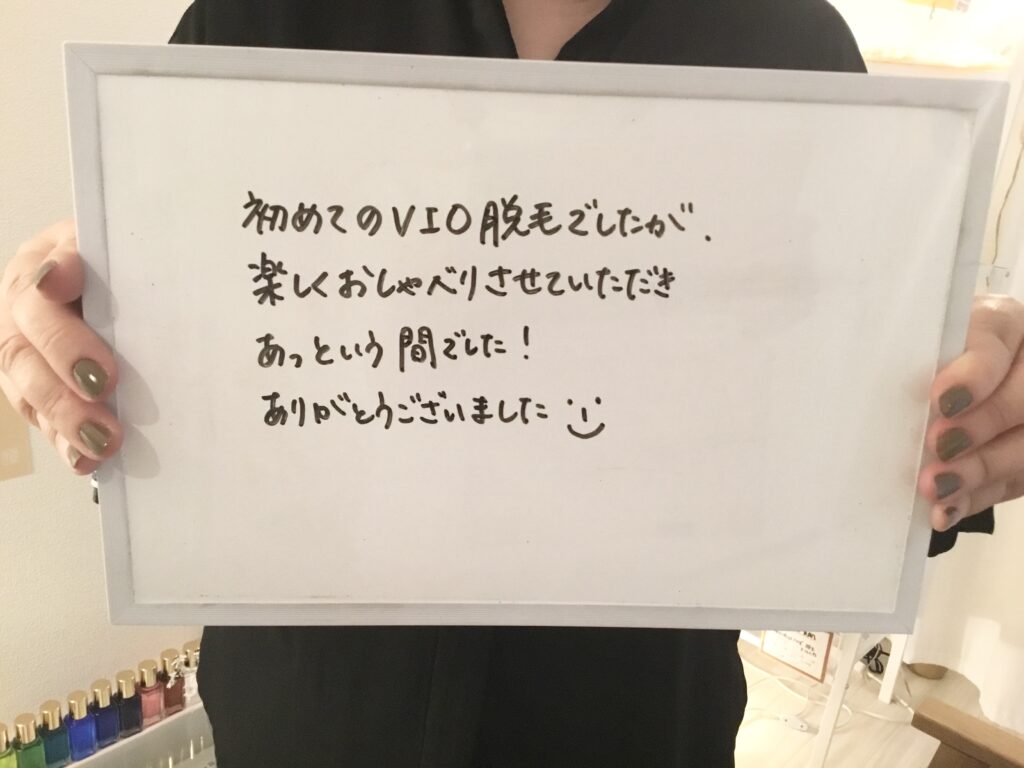 初めてのVIO脱毛でしたが、
楽しくおしゃべりさせていただき
あっという間でした!
ありがとうございました